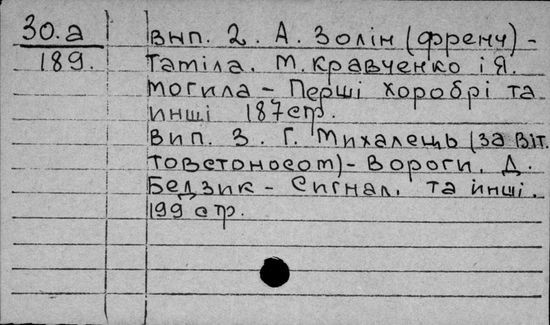 30.а
189.
вип. 2. А. Золін (френч) -
Гатіла. М. Кравченко і Я.
Могила - Перші хоробрі та
инші 187 стр.
Вип. 3. Г. Михалець (за Віт.
товстоносот) - Вороги. Д.
Бедзик - Сигнал. та инші.
199 стр.